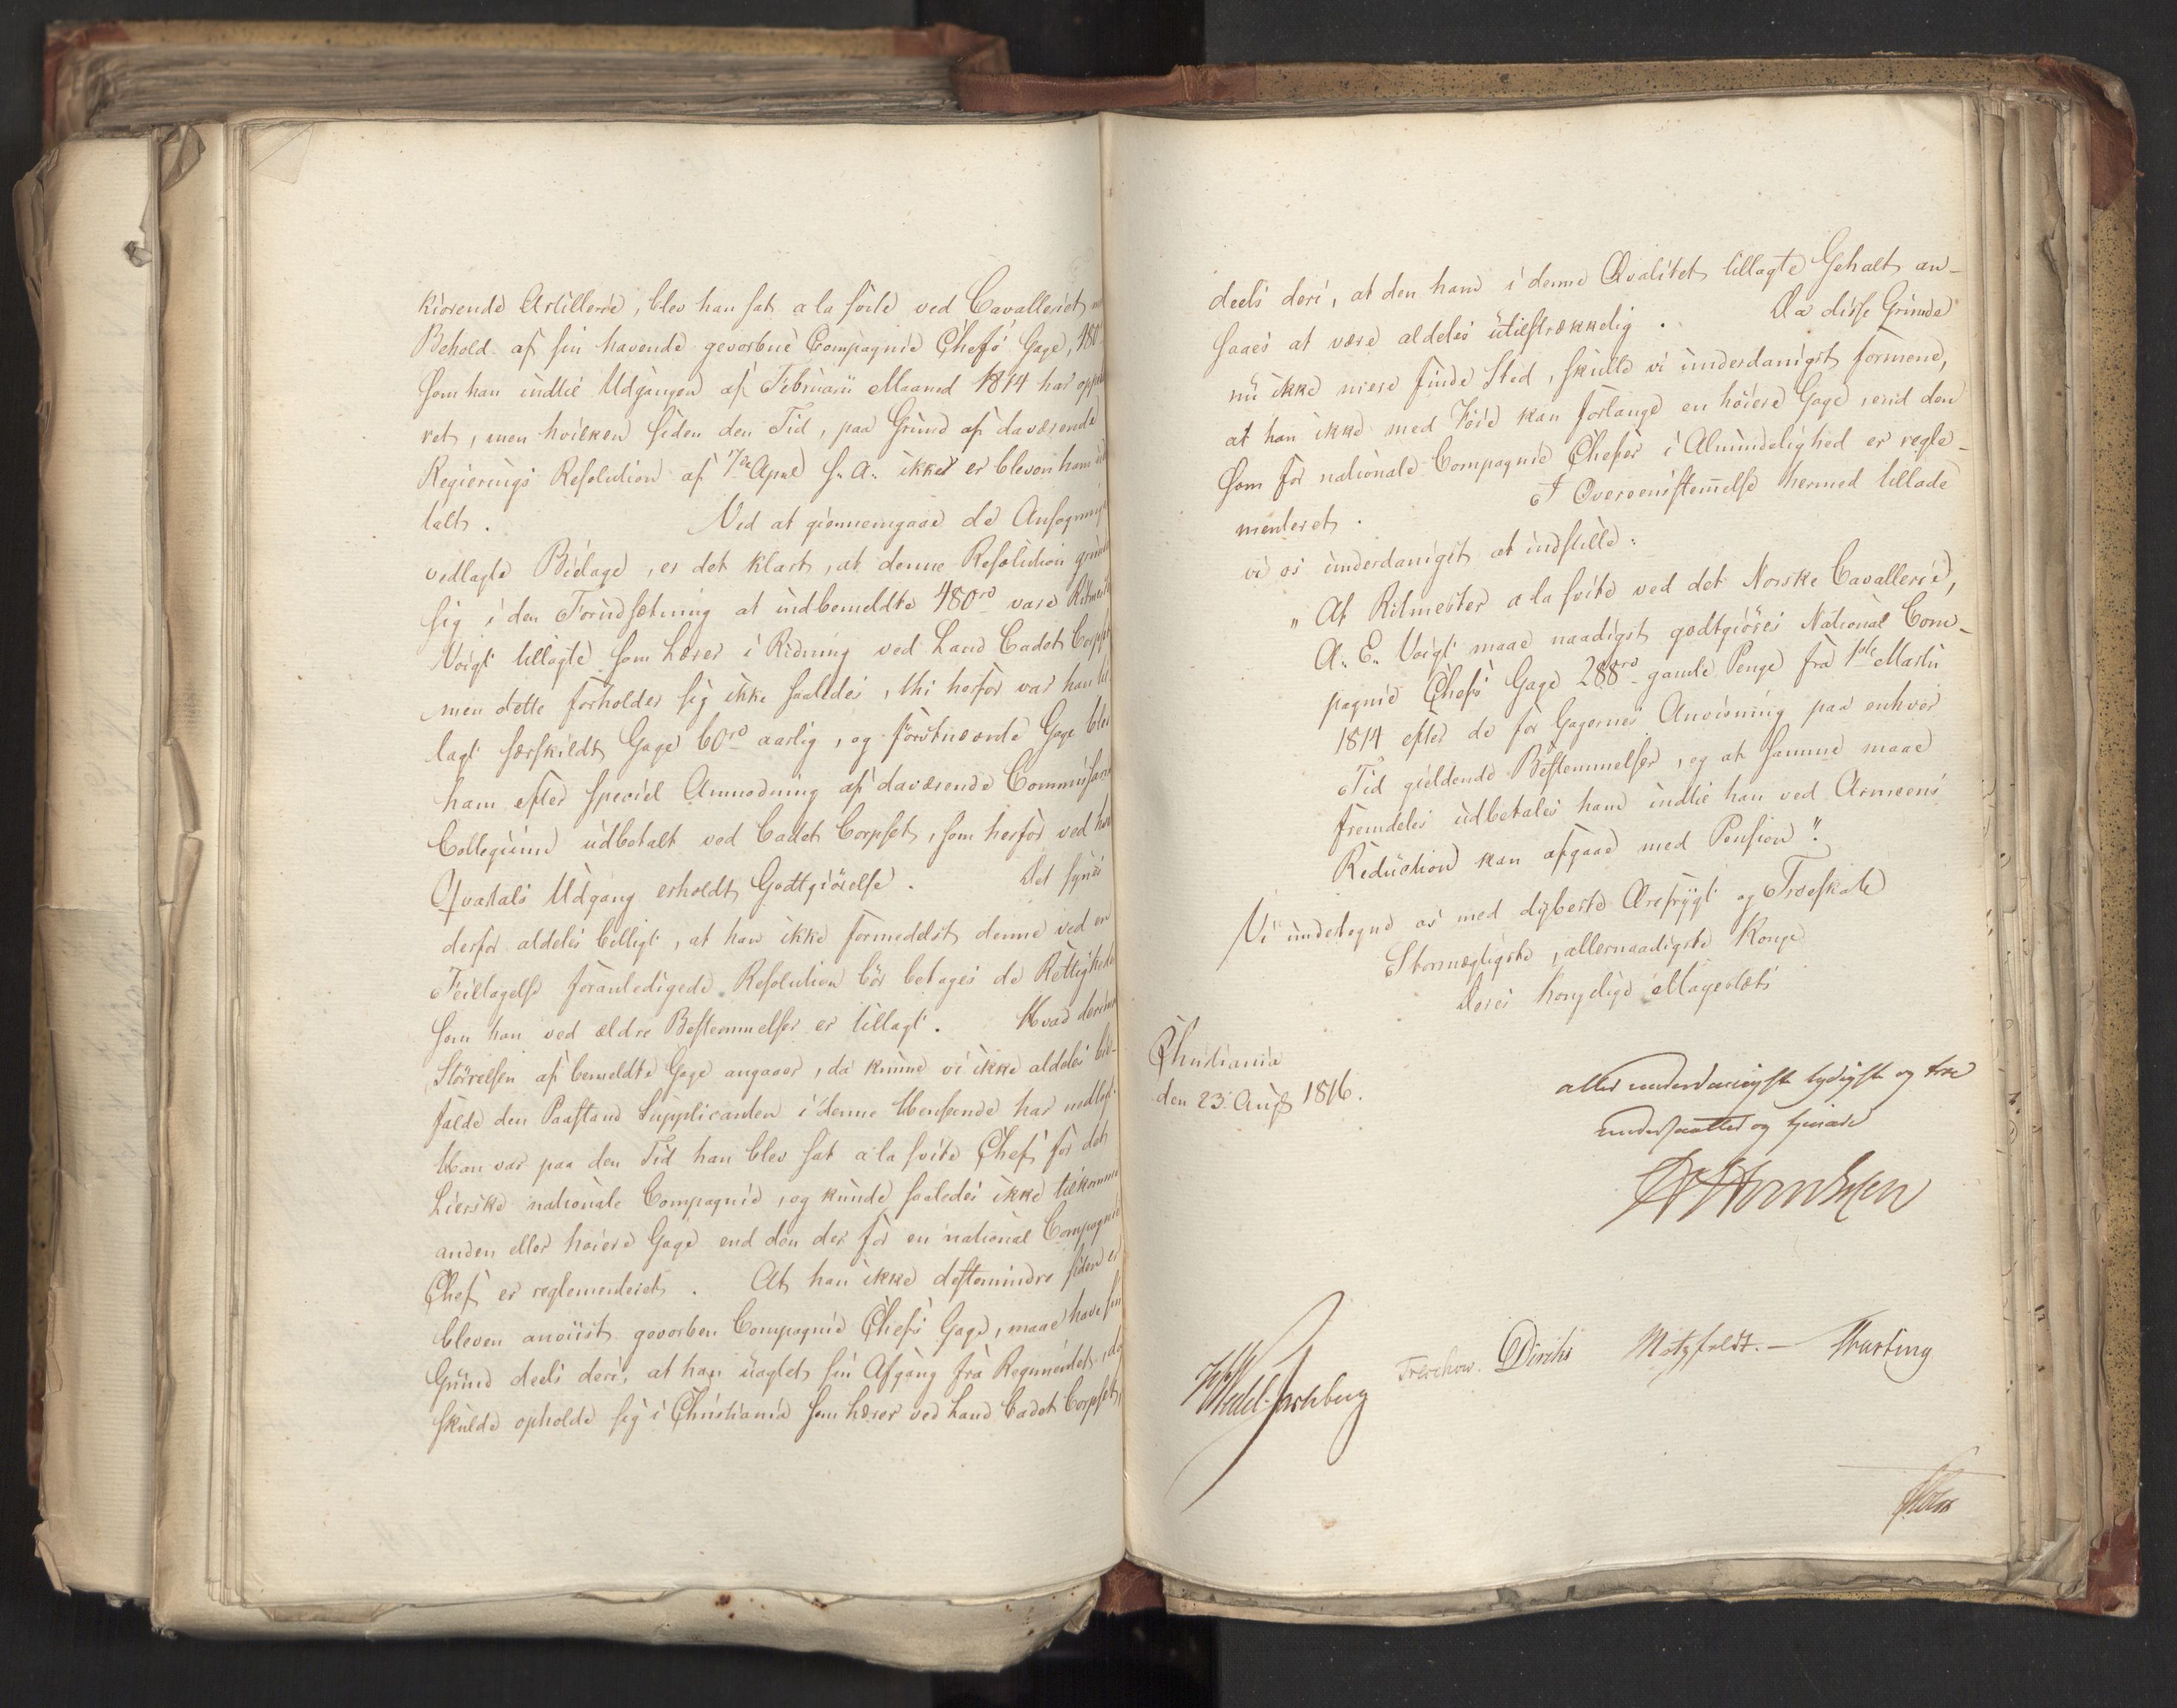 kiørende Artillerie, blev han sat a la suite ved Cavalleriet
Behold af sin havende gevorbne Compagnie Chefs Gage, 480
som han indtil Udgangen af Februarii Maaned 1814 har oppe
ret, men hvilken siden den Tid, paa Grund af daværende
Regierings Resolution af 7de April s. A. ikke er bleven ham
talt. Ved at giennemgaae de Ansøgningen
vedlagte Bielage, er det klart, at denne Resolution grunde
sig i den Forudsætning at indbemeldte 480 rd vare Ritmester
Voigt tillagte som Lærer i Ridning ved Land Cadet Corpset
men dette forholder sig ikke saaledes, thi herfor var han til
lagt særskildt Gage 60 rd aarlig, og førstnævnte Gage blev
ham efter speciel Anmodning af daværende Commissariats
Collegium udbetalt ved Cadet Corpset, som herfor ved hvert
Qvartals Udgang erholdt Godtgiørelse. Det synes
derfor aldeles billigt, at han ikke formedelst denne ved en
Feiltagelse foranledigede Resolution bør betages de Rettigheder
som han ved ældre Bestemmelser er tillagt. Hvad derimod
Størrelsen af bemeldte Gage angaaer, da kunne vi ikke aldeles bi-
falde den Paastand Supplicanten i denne Henseende har nedlagt.
Han var paa den Tid han blev sat a la suite Chef for det
Lierske nationale Compagnie, og kunde saaledes ikke tilkomme
anden eller høiere Gage end den der for en national Compagnie
Chef er reglementeret. At han ikke destomindre siden er
bleven anviist gevorben Compagnie Chefs Gage, maae have sin
Grund deels deri, at han uagtet sin Afgang fra Regimentet, da
skulde opholde sig i Christiania som Lærer ved Land Cadet Corpset,
deels deri, at den ham i denne Qvalitet tillagte Gehalt an-
saaes at være aldeles utilstrækkelig. Da disse Grunde
nu ikke mere finde Sted, skulle vi underdanigst formene,
at han ikke med Føie kan forlange en høiere Gage, end den
som for nationale Compagnie Chefer i Almindelighed er regle-
menteret. I Overeenstemmelse hermed tillade
vi os underdanigst at indstille:
"At Ritmester a la suite ved det Norske Cavallerie,
A. E. Voigt maae naadigst godtgiøres National Com-
pagnie Chefs Gage 288 rd gamle Penge fra 1ste Martii
1814 efter de for Gagernes Anviisning paa enhver
Tid gieldende Bestemmelser, og at samme maae
fremdeles udbetales ham indtil han ved Armeens
Reduction kan afgaae med Pension".
Vi undertegne os med dybeste Ærefrygt og Troeskab
Stormægtigste, allernaadigste Konge
Deres Kongelige Majestæts
Christiania
den 23 Aug 1816.
aller underdanigste lydigste og troe
undersaatter og tjenere
Wedel-Jarlsberg Treschow. Diriks Motzfeldt. Krarting
Holm